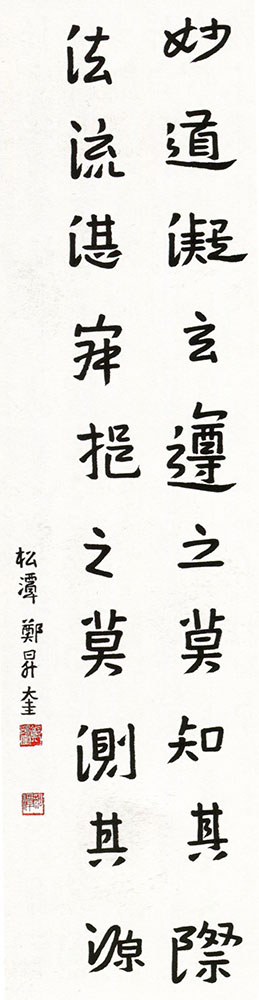 妙道凝玄遵之莫知其際
法流湛寂挹之莫測其源
松潭 鄭昇奎